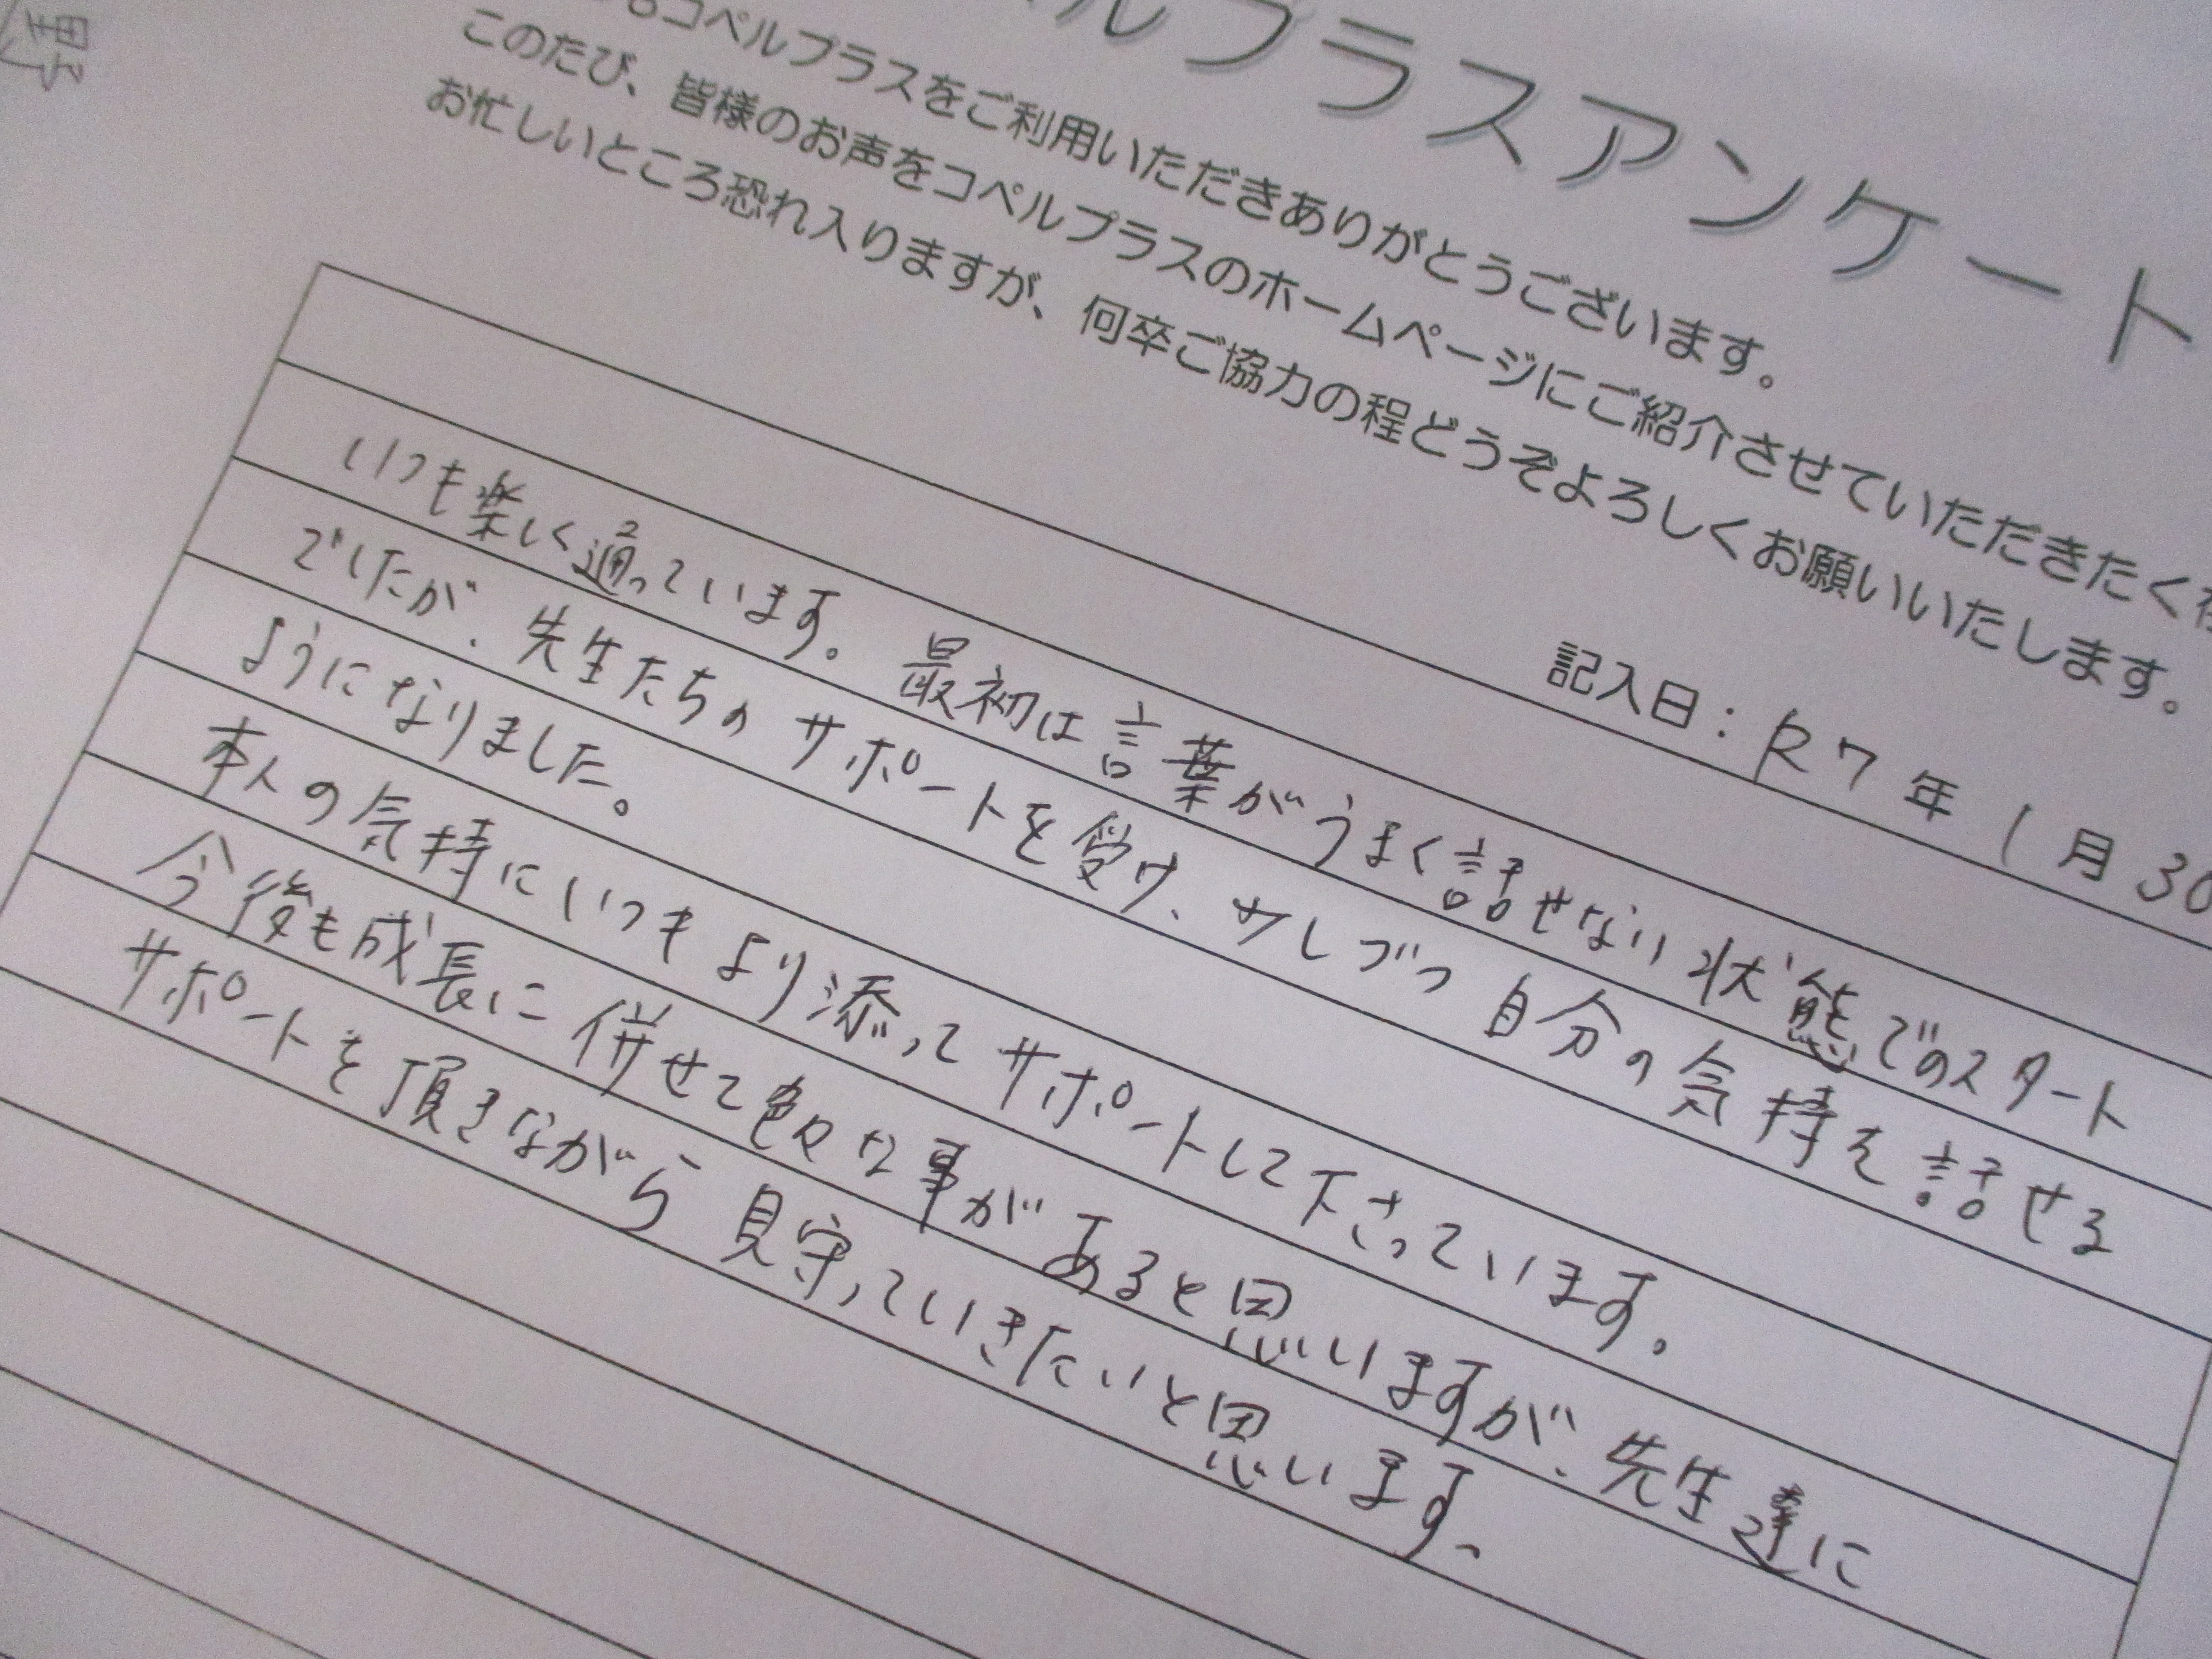 ルプラスアンケート
コペルプラスをご利用いただきありがとうございます。
このたび、皆様のお声をコペルプラスのホームページにご紹介させていただきたく
お忙しいところ恐れ入りますが、何卒ご協力の程どうぞよろしくお願いいたします。
記入日：R7年1月30
いつも楽しく通っています。最初は言葉がうまく話せない状態でのスタート
でしたが、先生たちのサポートを受け、少しづつ自分の気持を話せる
ようになりました。
本人の気持にいつもより添ってサポートして下さっています。
今後も成長に併せて色々な事があると思いますが、先生達に
サポートを頂きながら見守っていきたいと思います、